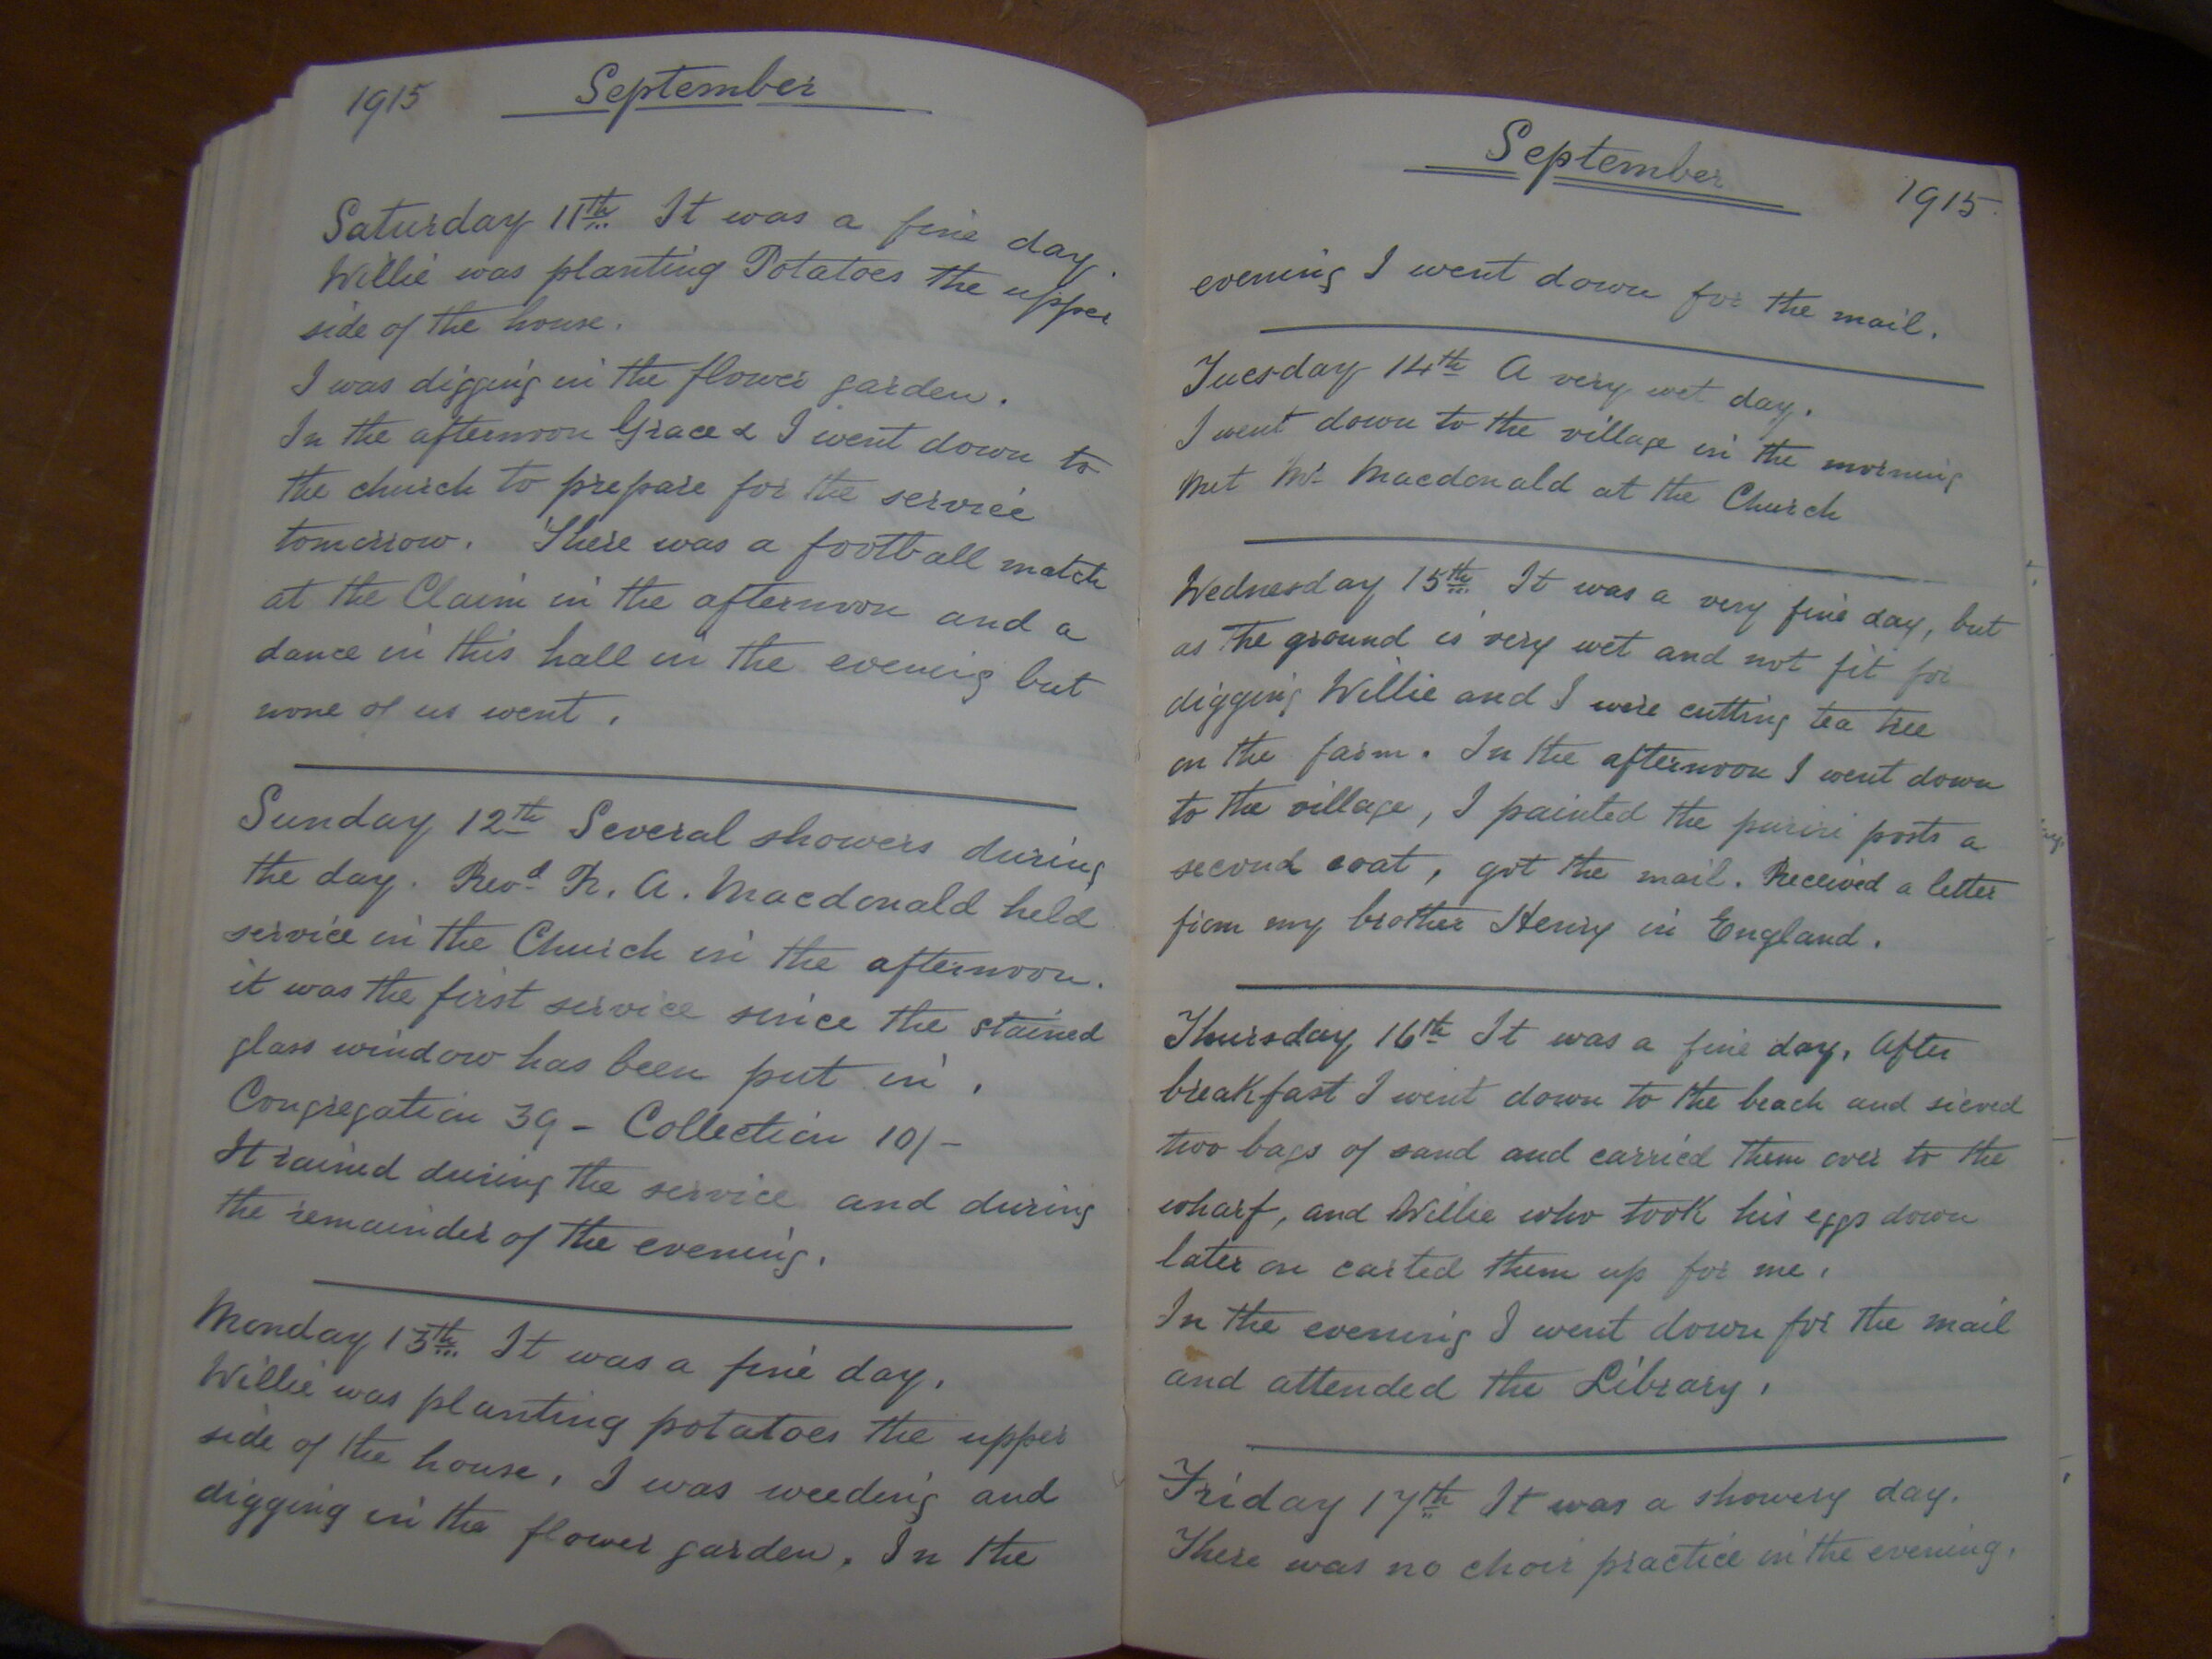 1915 September
Saturday 11th It was a fine day.
Willie was planting Potatoes the upper
side of the house.
I was digging in the flower garden.
In the afternoon Grace & I went down to
the church to prepare for the service
tomorrow. There was a football match
at the Claim in the afternoon and a
dance in this hall in the evening but
none of us went.
Sunday 12th Several showers during
the day. Revd R. A. Macdonald held
service in the Church in the afternoon.
it was the first service since the stained
glass window has been put in.
Congregation 39 - Collection 10/-
It rained during the service and during
the remainder of the evening.
Monday 13th It was a fine day.
Willie was planting potatoes the upper
side of the house. I was weeding and
digging in the flower garden. In the
September 1915
evening I went down for the mail.
Tuesday 14th A very wet day.
I went down to the village in the morning
met Mr Macdonald at the Church
Wednesday 15th It was a very fine day, but
as the ground is very wet and not fit for
digging Willie and I were cutting tea tree
on the farm. In the afternoon I went down
to the village, I painted the puriri posts a
second coat, got the mail. Received a letter
from my brother Henry in England.
Thursday 16th It was a fine day. After
breakfast I went down to the beach and sieved
two bags of sand and carried them over to the
wharf, and Willie who took his eggs down
later on carted them up for me.
In the evening I went down for the mail
and attended the Library.
Friday 17th It was a showery day.
There was no choir practice in the evening.